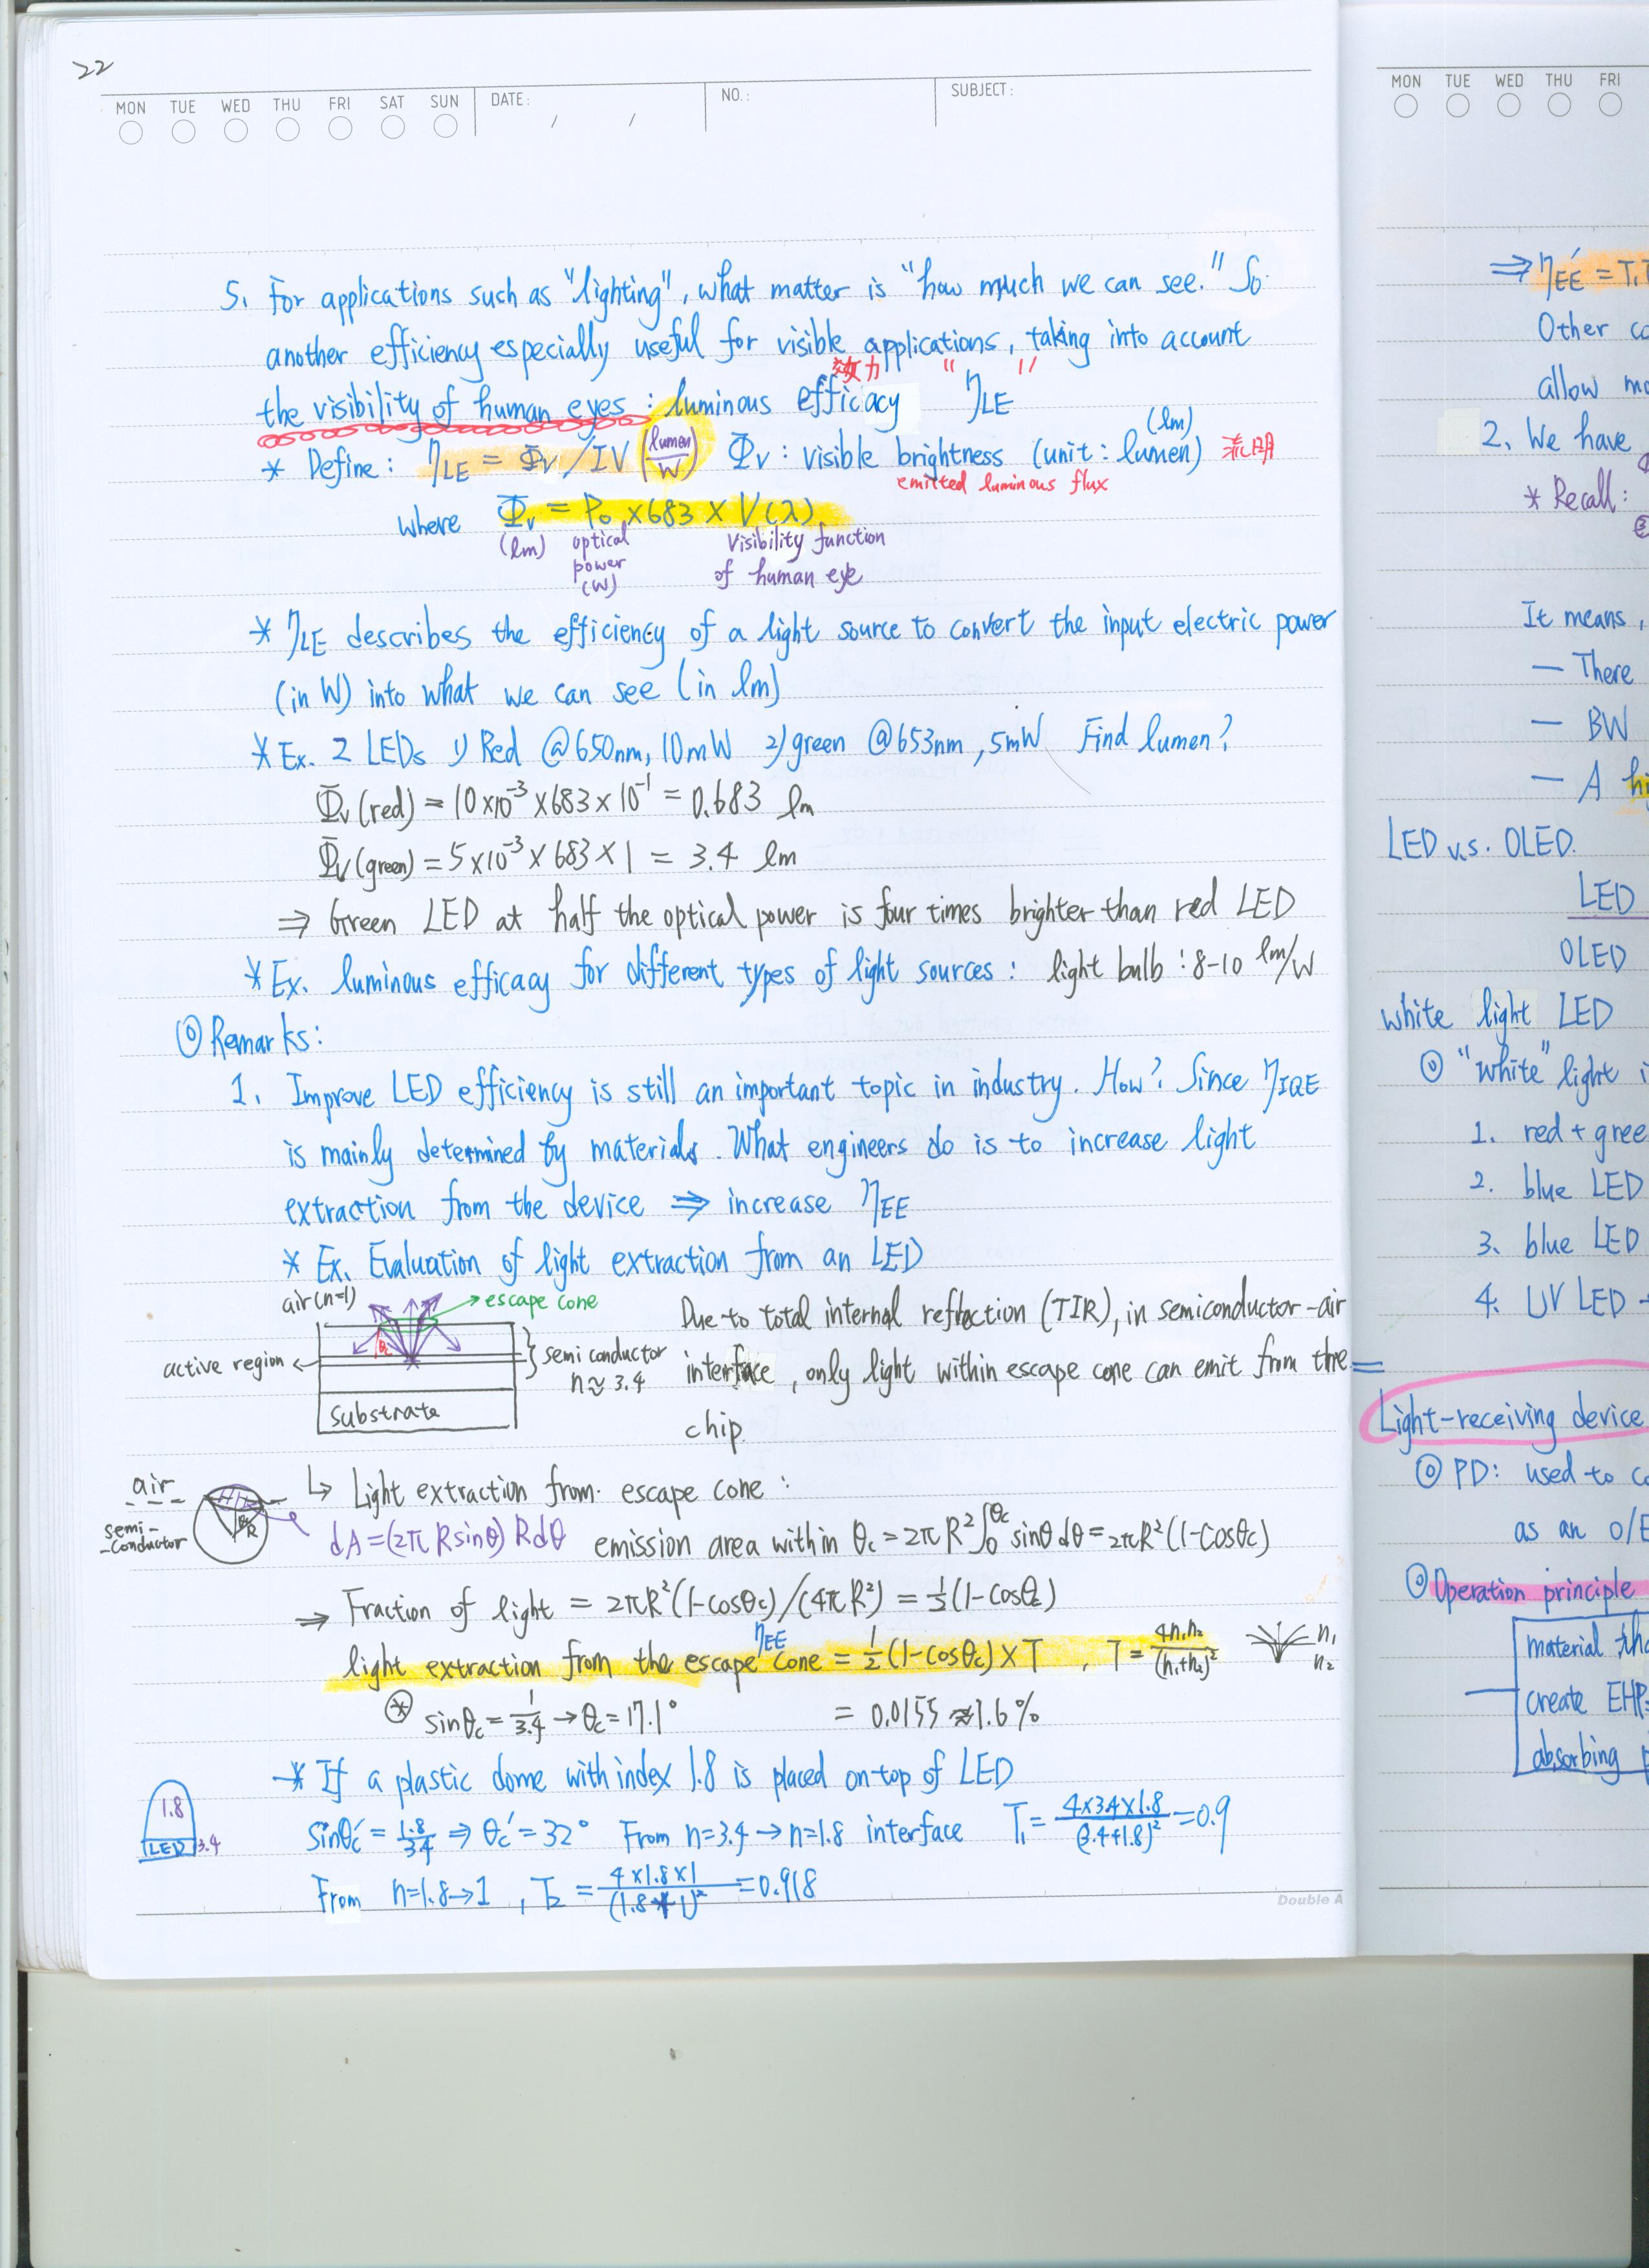 22
MON TUE WED THU FRI SAT SUN DATE: / / NO.: SUBJECT:
5. For applications such as "lighting", what matter is "how much we can see." So
another efficiency especially useful for visible applications, taking into account
the visibility of human eyes : luminous efficacy "ηLE"
效力
* Define: ηLE = Φv / IV (lumen/W) Φv : visible brightness (unit : lumen) (lm) 流明
emitted luminous flux
where Φv = Po × 683 × V(λ)
(lm) optical power (W) Visibility function of human eye
* ηLE describes the efficiency of a light source to convert the input electric power
(in W) into what we can see (in lm)
* Ex. 2 LEDs 1) Red @650nm, 10mW 2) green @653nm, 5mW Find lumen?
Φv (red) = 10×10⁻³ × 683 × 10⁻¹ = 0.683 lm
Φv (green) = 5×10⁻³ × 683 × 1 = 3.4 lm
⇒ Green LED at half the optical power is four times brighter than red LED
* Ex. luminous efficacy for different types of light sources : light bulb : 8-10 lm/W
◎ Remarks:
1. Improve LED efficiency is still an important topic in industry. How? Since ηIQE
is mainly determined by materials. What engineers do is to increase light
extraction from the device ⇒ increase ηEE
* Ex. Evaluation of light extraction from an LED
air (n=1) escape cone
θc
active region
semiconductor n≈3.4
substrate
Due to total internal reflection (TIR), in semiconductor-air
interface, only light within escape cone can emit from the
chip
air
semi-
-conductor
θc R
↳ Light extraction from escape cone :
dA = (2π R sinθ) R dθ emission area within θc = 2πR² ∫₀^θc sinθ dθ = 2πR² (1-cosθc)
⇒ Fraction of light = 2πR² (1-cosθc) / (4πR²) = ½ (1-cosθc)
light extraction from the escape cone ηEE = ½ (1-cosθc) × T , T = 4n₁n₂/(n₁+n₂)²
n₁
n₂
⊛ sinθc = 1/3.4 → θc = 17.1° = 0.0155 ≈ 1.6%
* If a plastic dome with index 1.8 is placed on top of LED
1.8
LED 3.4
sinθc' = 1.8/3.4 ⇒ θc' = 32° From n=3.4 → n=1.8 interface T₁ = 4×3.4×1.8/(3.4+1.8)² = 0.9
From n=1.8→1 , T₂ = 4×1.8×1/(1.8+1)² = 0.918
Double A
MON TUE WED THU FRI
⇒ ηEE' = T₁
Other
allow
2. We have
* Recall :
It means,
— There
— BW
— A
LED v.s. OLED.
LED
OLED
white light LED
◎ "white" light
1. red +
2. blue LED
3. blue LED
4. UV LED
Light-receiving device
◎ PD: used to
as an O/E
◎ Operation principle
material
create EHP
absorbing